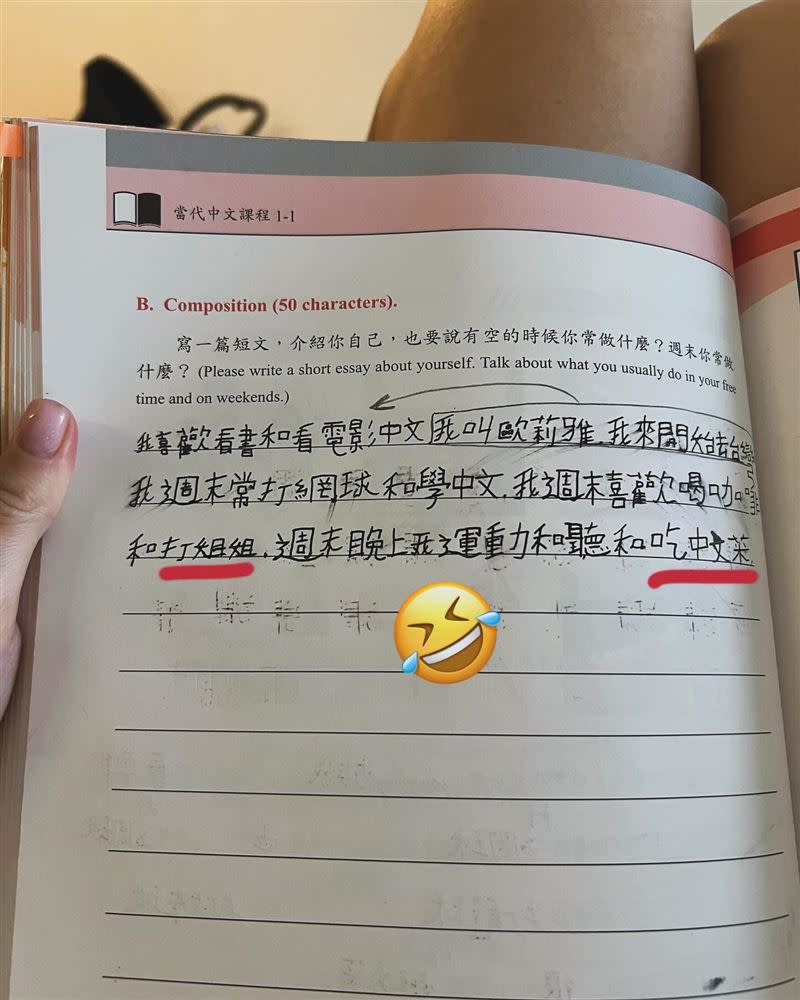 當代中文課程 1-1
B. Composition (50 characters).
寫一篇短文,介紹你自己,也要說有空的時候你常做什麼?週末你常做
什麼? (Please write a short essay about yourself. Talk about what you usually do in your free
time and on weekends.)
我喜歡看書和看電影中文我叫歐莉雅.我來
我週末常打網球和學中文.我週末喜歡喝咖啡
和打姐姐.週末晚上我運動和聽和吃中文菜.